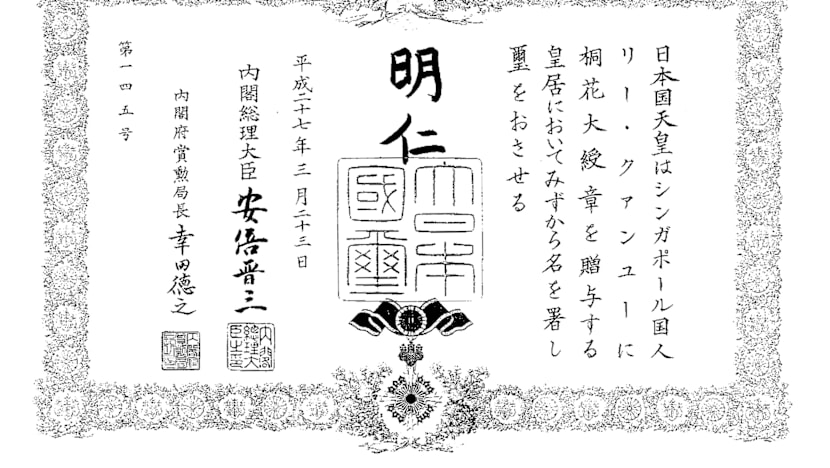 日本国天皇はシンガポール国人
リー・クァンユーに
桐花大綬章を贈与する
皇居においてみずから名を署し
璽をおさせる
明仁
大日本
國璽
平成二十七年三月二十三日
内閣総理大臣 安倍晋三
内閣総理大臣之章
内閣府賞勲局長 幸田徳之
第一四五号